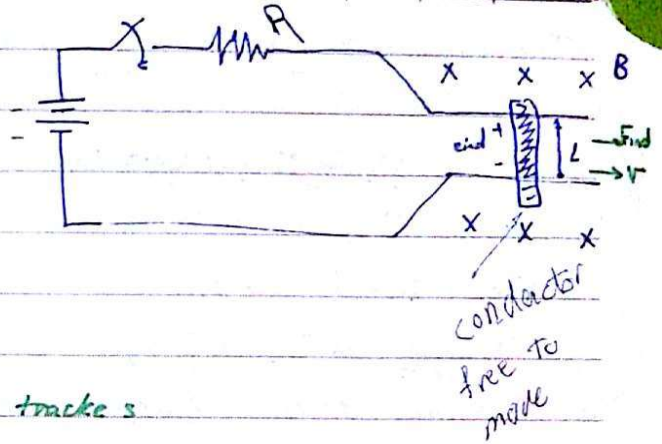 R
x x x B
-
eind +
-
L
Find
→ V
x x x
conductor
free to
move
tracke s